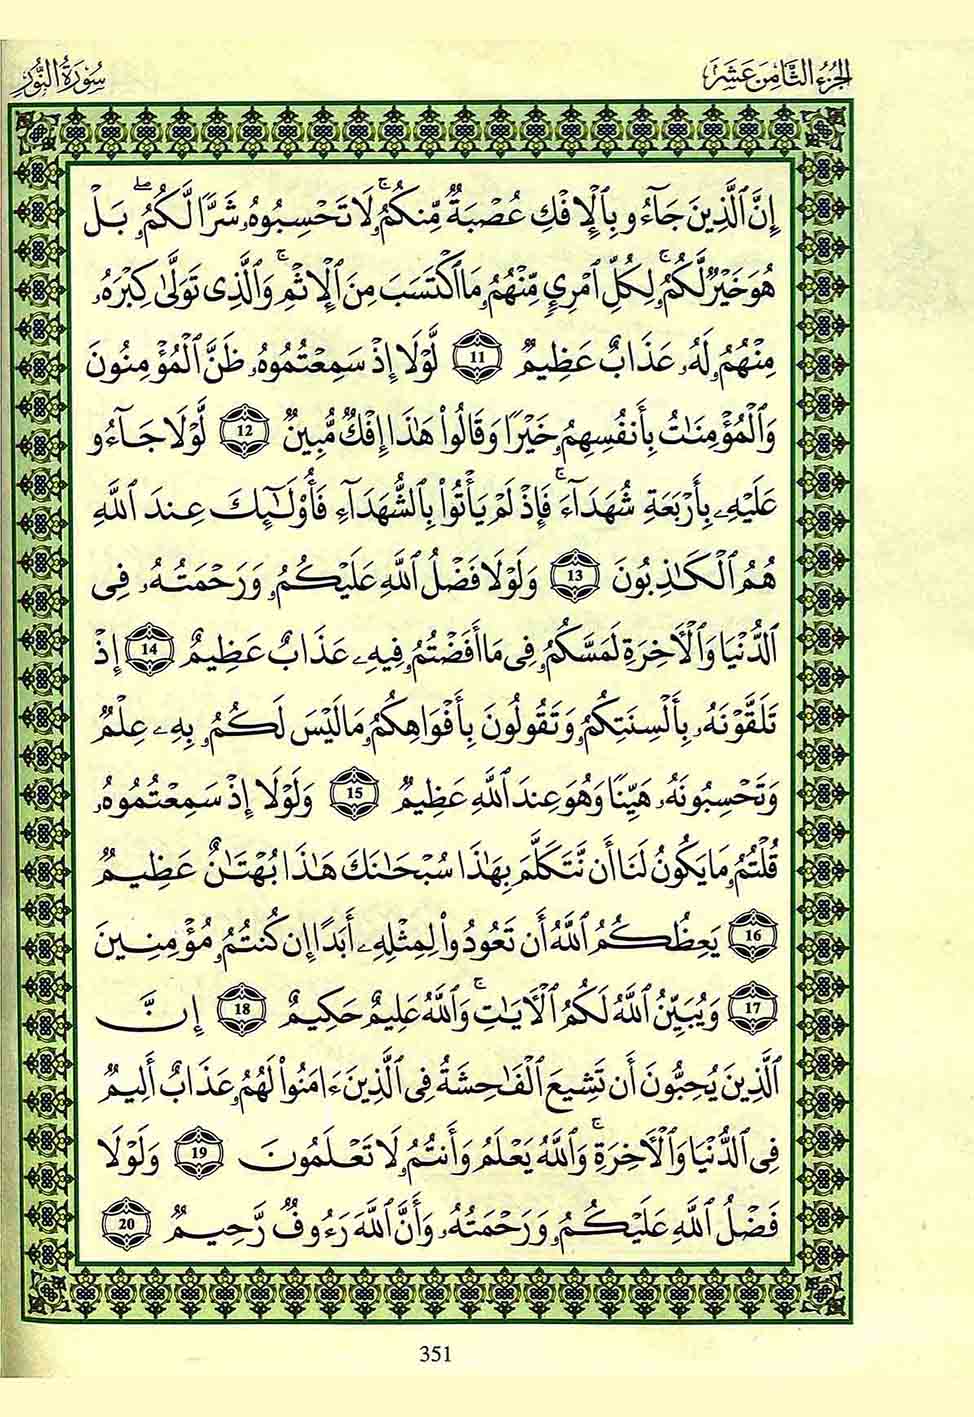 الجزء الثامن عشر
سورة النور
إِنَّ ٱلَّذِينَ جَآءُو بِٱلْإِفْكِ عُصْبَةٌ مِّنكُمُۥ ۚ لَا تَحْسِبُوهُۥ شَرًّا لَّكُمُۥ ۖ بَلْ
هُوَ خَيْرٌ لَّكُمُۥ ۚ لِكُلِّ ٱمْرِيٍٕ مِّنْهُمُۥ مَا ٱكْتَسَبَ مِنَ ٱلْإِثْمِ ۚ وَٱلَّذِى تَوَلَّىٰ كِبْرَهُۥ
مِنْهُمُۥ لَهُۥ عَذَابٌ عَظِيمٌ 11 لَّوْلَا إِذْ سَمِعْتُمُوهُۥ ظَنَّ ٱلْمُؤْمِنُونَ
وَٱلْمُؤْمِنَٰتُ بِأَنفُسِهِمُۥ خَيْرًا وَقَالُوا۟ هَٰذَا إِفْكٌ مُّبِينٌ 12 لَّوْلَا جَآءُو
عَلَيْهِۦ بِأَرْبَعَةِ شُهَدَآءَ ۚ فَإِذْ لَمْ يَأْتُوا۟ بِٱلشُّهَدَآءِ فَأُو۟لَٰٓئِكَ عِندَ ٱللَّهِ
هُمُ ٱلْكَٰذِبُونَ 13 وَلَوْلَا فَضْلُ ٱللَّهِ عَلَيْكُمُۥ وَرَحْمَتُهُۥ فِى
ٱلدُّنْيَا وَٱلْأَخِرَةِ لَمَسَّكُمُۥ فِى مَا أَفَضْتُمُۥ فِيهِۦ عَذَابٌ عَظِيمٌ 14 إِذْ
تَلَقَّوْنَهُۥ بِأَلْسِنَتِكُمُۥ وَتَقُولُونَ بِأَفْوَاهِكُمُۥ مَا لَيْسَ لَكُمُۥ بِهِۦ عِلْمٌ
وَتَحْسِبُونَهُۥ هَيِّنًا وَهُوَ عِندَ ٱللَّهِ عَظِيمٌ 15 وَلَوْلَا إِذْ سَمِعْتُمُوهُۥ
قُلْتُمُۥ مَا يَكُونُ لَنَا أَن نَّتَكَلَّمَ بِهَٰذَا سُبْحَٰنَكَ هَٰذَا بُهْتَٰنٌ عَظِيمٌ
16 يَعِظُكُمُ ٱللَّهُ أَن تَعُودُوا۟ لِمِثْلِهِۦ أَبَدًا إِن كُنتُمُۥ مُؤْمِنِينَ
17 وَيُبَيِّنُ ٱللَّهُ لَكُمُ ٱلْأَيَٰتِ ۚ وَٱللَّهُ عَلِيمٌ حَكِيمٌ 18 إِنَّ
ٱلَّذِينَ يُحِبُّونَ أَن تَشِيعَ ٱلْفَٰحِشَةُ فِى ٱلَّذِينَ ءَامَنُوا۟ لَهُمُۥ عَذَابٌ أَلِيمٌ
فِى ٱلدُّنْيَا وَٱلْأَخِرَةِ ۚ وَٱللَّهُ يَعْلَمُ وَأَنتُمُۥ لَا تَعْلَمُونَ 19 وَلَوْلَا
فَضْلُ ٱللَّهِ عَلَيْكُمُۥ وَرَحْمَتُهُۥ وَأَنَّ ٱللَّهَ رَءُوفٌ رَّحِيمٌ 20
351